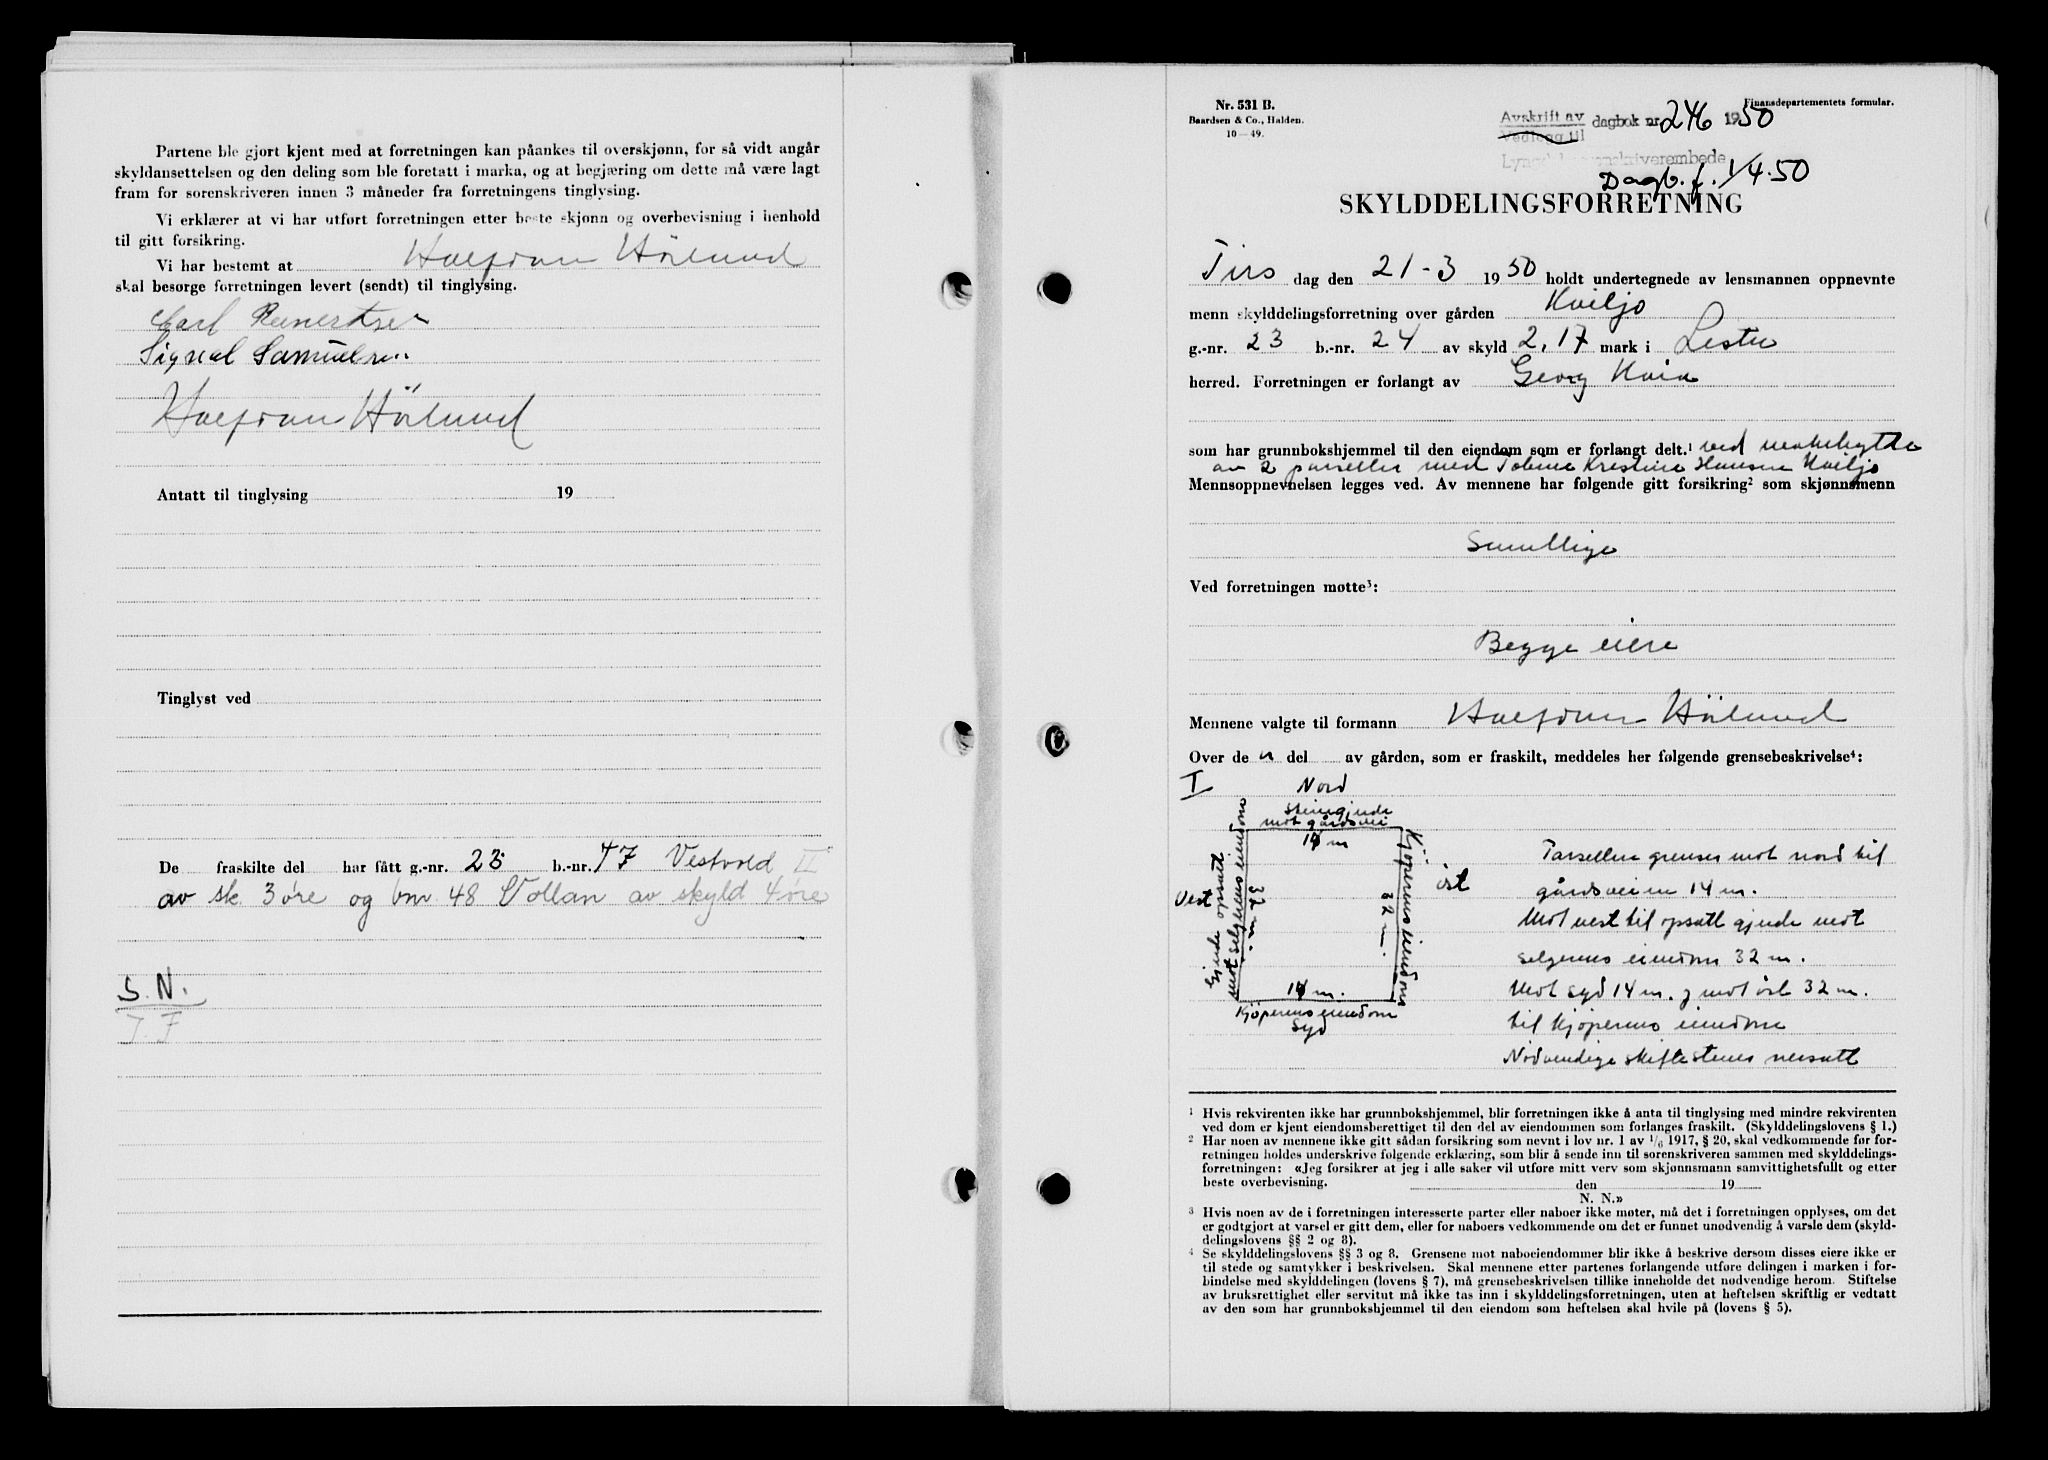 Partene ble gjort kjent med at forretningen kan påankes til overskjønn, for så vidt angår
skyldansettelsen og den deling som ble foretatt i marka, og at begjæring om dette må være lagt
fram for sorenskriveren innen 3 måneder fra forretningens tinglysing.
Vi erklærer at vi har utført forretningen etter beste skjønn og overbevisning i henhold
til gitt forsikring.
Vi har bestemt at Halfdan Hörlund
skal besørge forretningen levert (sendt) til tinglysing.
Carl Reinertsen
Sigval Samuelsen
Halfdan Hörlund
Antatt til tinglysing 19
Tinglyst ved
De fraskilte del har fått g.-nr. 23 b.-nr. 47 Vestvold II
av sk. 3 øre og bnr 48 Vollan av skyld 4 øre
S. N.
T. F
Nr. 531 B.
Baardsen & Co., Halden.
10—49.
Finansdepartementets formular.
Avskrift av dagbok nr 246 1950
Vedlegg til
Lyngdal sorenskriverembede
Dagb. f. 1/4. 50
SKYLDDELINGSFORRETNING
Tirs dag den 21-3 1950 holdt undertegnede av lensmannen oppnevnte
menn skylddelingsforretning over gården Kviljo
g.-nr. 23 b.-nr. 24 av skyld 2,17 mark i Lista
herred. Forretningen er forlangt av Georg
som har grunnbokshjemmel til den eiendom som er forlangt delt.¹ ved makebytte
av 2 parseller med Tobine Kristine Hansen Kviljo
Mennsoppnevnelsen legges ved. Av mennene har følgende gitt forsikring² som skjønnsmenn
Samtlige
Ved forretningen møtte³:
Begge eiere
Mennene valgte til formann Halfdan Hörlund
Over de n del av gården, som er fraskilt, meddeles her følgende grensebeskrivelse⁴:
I Nord
Steingjerde
mot gårdsvei
14 m
Vest
Gjerde opsatt
mot selgerens eiendom
32 m.
32 m.
Kjøperens eiendom
öst
14 m.
Kjøperens eiendom
Syd
Parsellen grenser mot nord til
gårdsveien 14 m.
Mot vest til opsatt gjerde mot
selgerens eiendom 32 m.
Mot syd 14 m. og mot öst 32 m.
til kjøperens eiendom
Nödvendige skiftestener nersatt
¹ Hvis rekvirenten ikke har grunnbokshjemmel, blir forretningen ikke å anta til tinglysing med mindre rekvirenten
ved dom er kjent eiendomsberettiget til den del av eiendommen som forlanges fraskilt. (Skylddelingslovens § 1.)
² Har noen av mennene ikke gitt sådan forsikring som nevnt i lov nr. 1 av 1/6 1917, § 20, skal vedkommende før for-
retningen holdes underskrive følgende erklæring, som blir å sende inn til sorenskriveren sammen med skylddelings-
forretningen: «Jeg forsikrer at jeg i alle saker vil utføre mitt verv som skjønnsmann samvittighetsfullt og etter
beste overbevisning. den 19
N. N.»
³ Hvis noen av de i forretningen interesserte parter eller naboer ikke møter, må det i forretningen opplyses, om det
er godtgjort at varsel er gitt dem, eller for naboers vedkommende om det er funnet unødvendig å varsle dem (skyld-
delingslovens §§ 2 og 8).
⁴ Se skylddelingslovens §§ 3 og 8. Grensene mot naboeiendommer blir ikke å beskrive dersom disses eiere ikke er
til stede og samtykker i beskrivelsen. Skal mennene etter partenes forlangende utføre delingen i marken i for-
bindelse med skylddelingen (lovens § 7), må grensebeskrivelsen tillike inneholde det nødvendige herom. Stiftelse
av bruksrettighet eller servitut må ikke tas inn i skylddelingsforretningen, uten at heftelsen skriftlig er vedtatt
av den som har grunnbokshjemmel til den eiendom som heftelsen skal hvile på (lovens § 5).